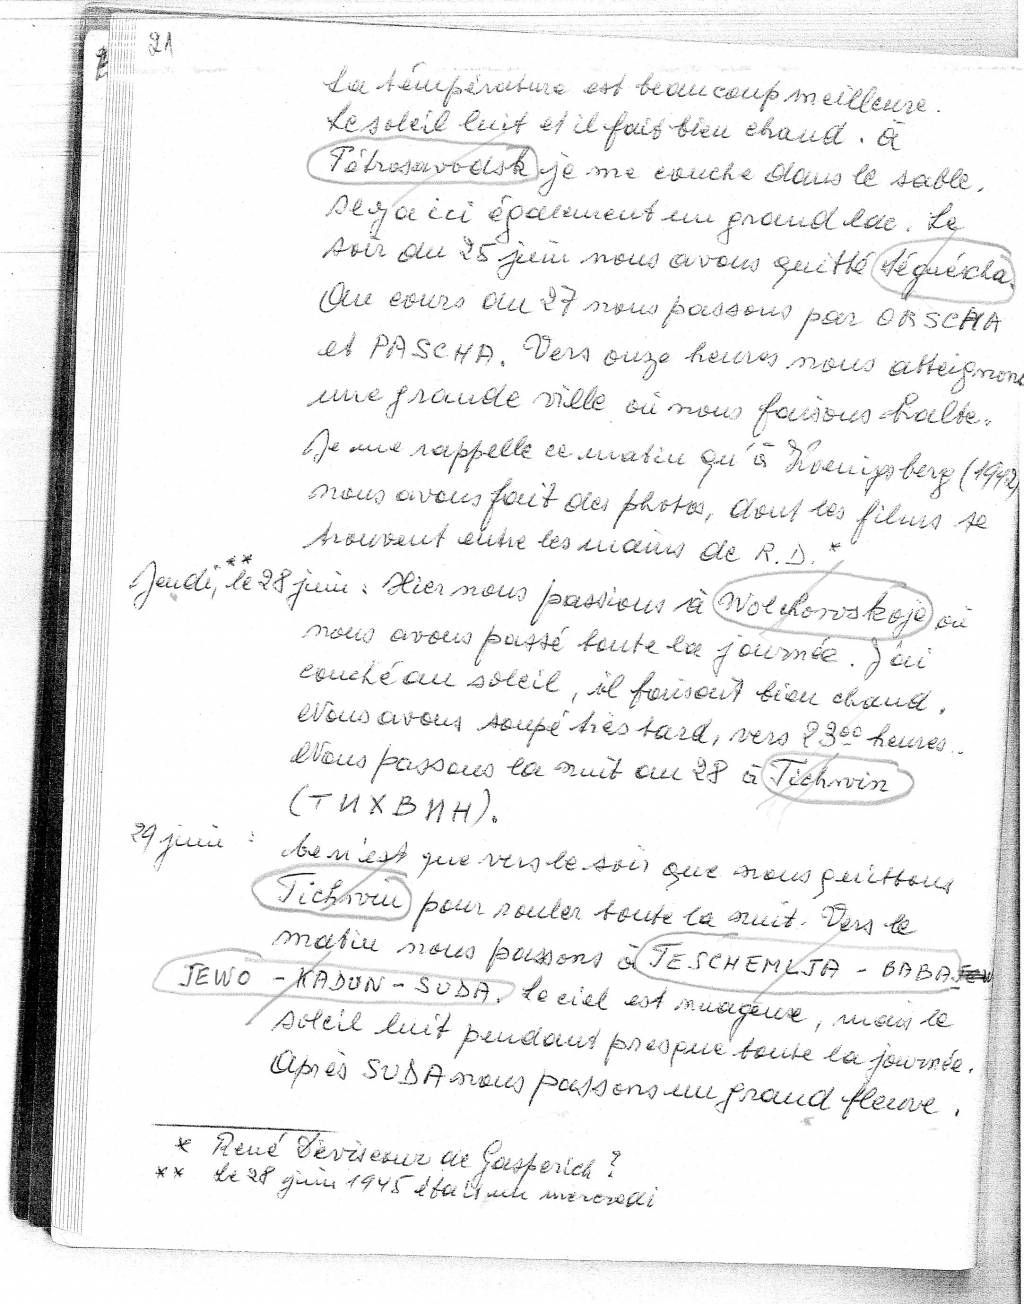 21
La température est beaucoup meilleure.
Le soleil luit et il fait bien chaud. à
Pétrosavodsk je me couche dans le sable.
Il y a ici également un grand lac. Le
soir du 25 juin nous avons quitté Ségueschà.
Au cours du 27 nous passons par ORSCHA
et PASCHA. Vers onze heures nous atteignons
une grande ville où nous faisons halte.
Je me rappelle ce matin qu'à Koenigsberg (1942)
nous avons fait des photos, dont les films se
trouvent entre les mains de R.D.*
Jeudi, le** 28 juin : Hier nous passions à Wolchowskoje où
nous avons passé toute la journée. J'ai
couché au soleil, il faisait bien chaud.
Nous avons soupé très tard, vers 23⁰⁰ heures.
Nous passons la nuit au 28 à Tichwin
(ТИХВИН).
29 juin : Ce n'est que vers le soir que nous quittons
Tichwin pour rouler toute la nuit. Vers le
matin nous passons à TESCHEMLJA - BABA
JEWO - KADUN - SUDA. Le ciel est nuageux, mais le
soleil luit pendant presque toute la journée.
Après SUDA nous passons un grand fleuve.
* René Deviscour de Gasperich?
** Le 28 juin 1945 était un mercredi